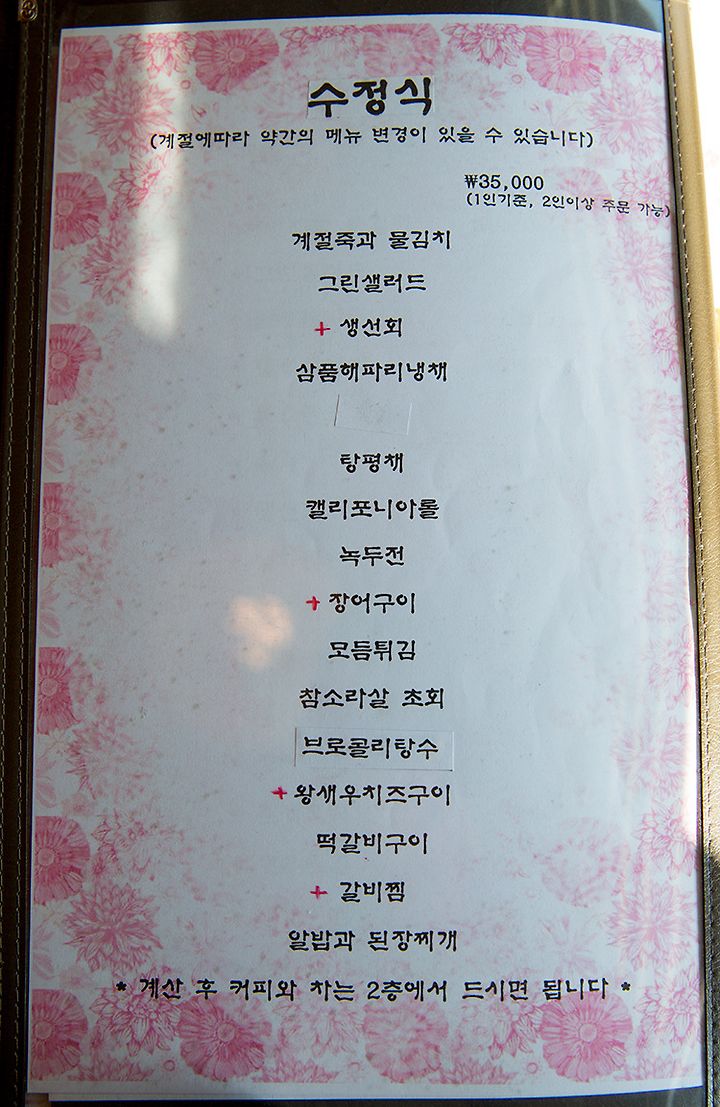 수정식
(계절에따라 약간의 메뉴 변경이 있을 수 있습니다)
₩35,000
(1인기준, 2인이상 주문 가능)
계절죽과 물김치
그린샐러드
+ 생선회
삼품해파리냉채
탕평채
캘리포니아롤
녹두전
+ 장어구이
모듬튀김
참소라살 초회
브로콜리탕수
+ 왕새우치즈구이
떡갈비구이
+ 갈비찜
알밥과 된장찌개
* 계산 후 커피와 차는 2층에서 드시면 됩니다 *